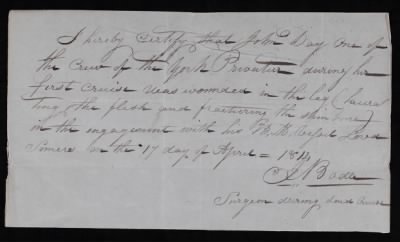 I hereby Certify that John Day one of
the Crew of the York Privateer during her
first Cruise was wounded in the leg (lacera
ting the flesh and fracturing the shin bone)
in the engagement with his B. M. Packet Lord
Somers on the 17 day of April = 1814
Bodee
Surgeon during said Cruise